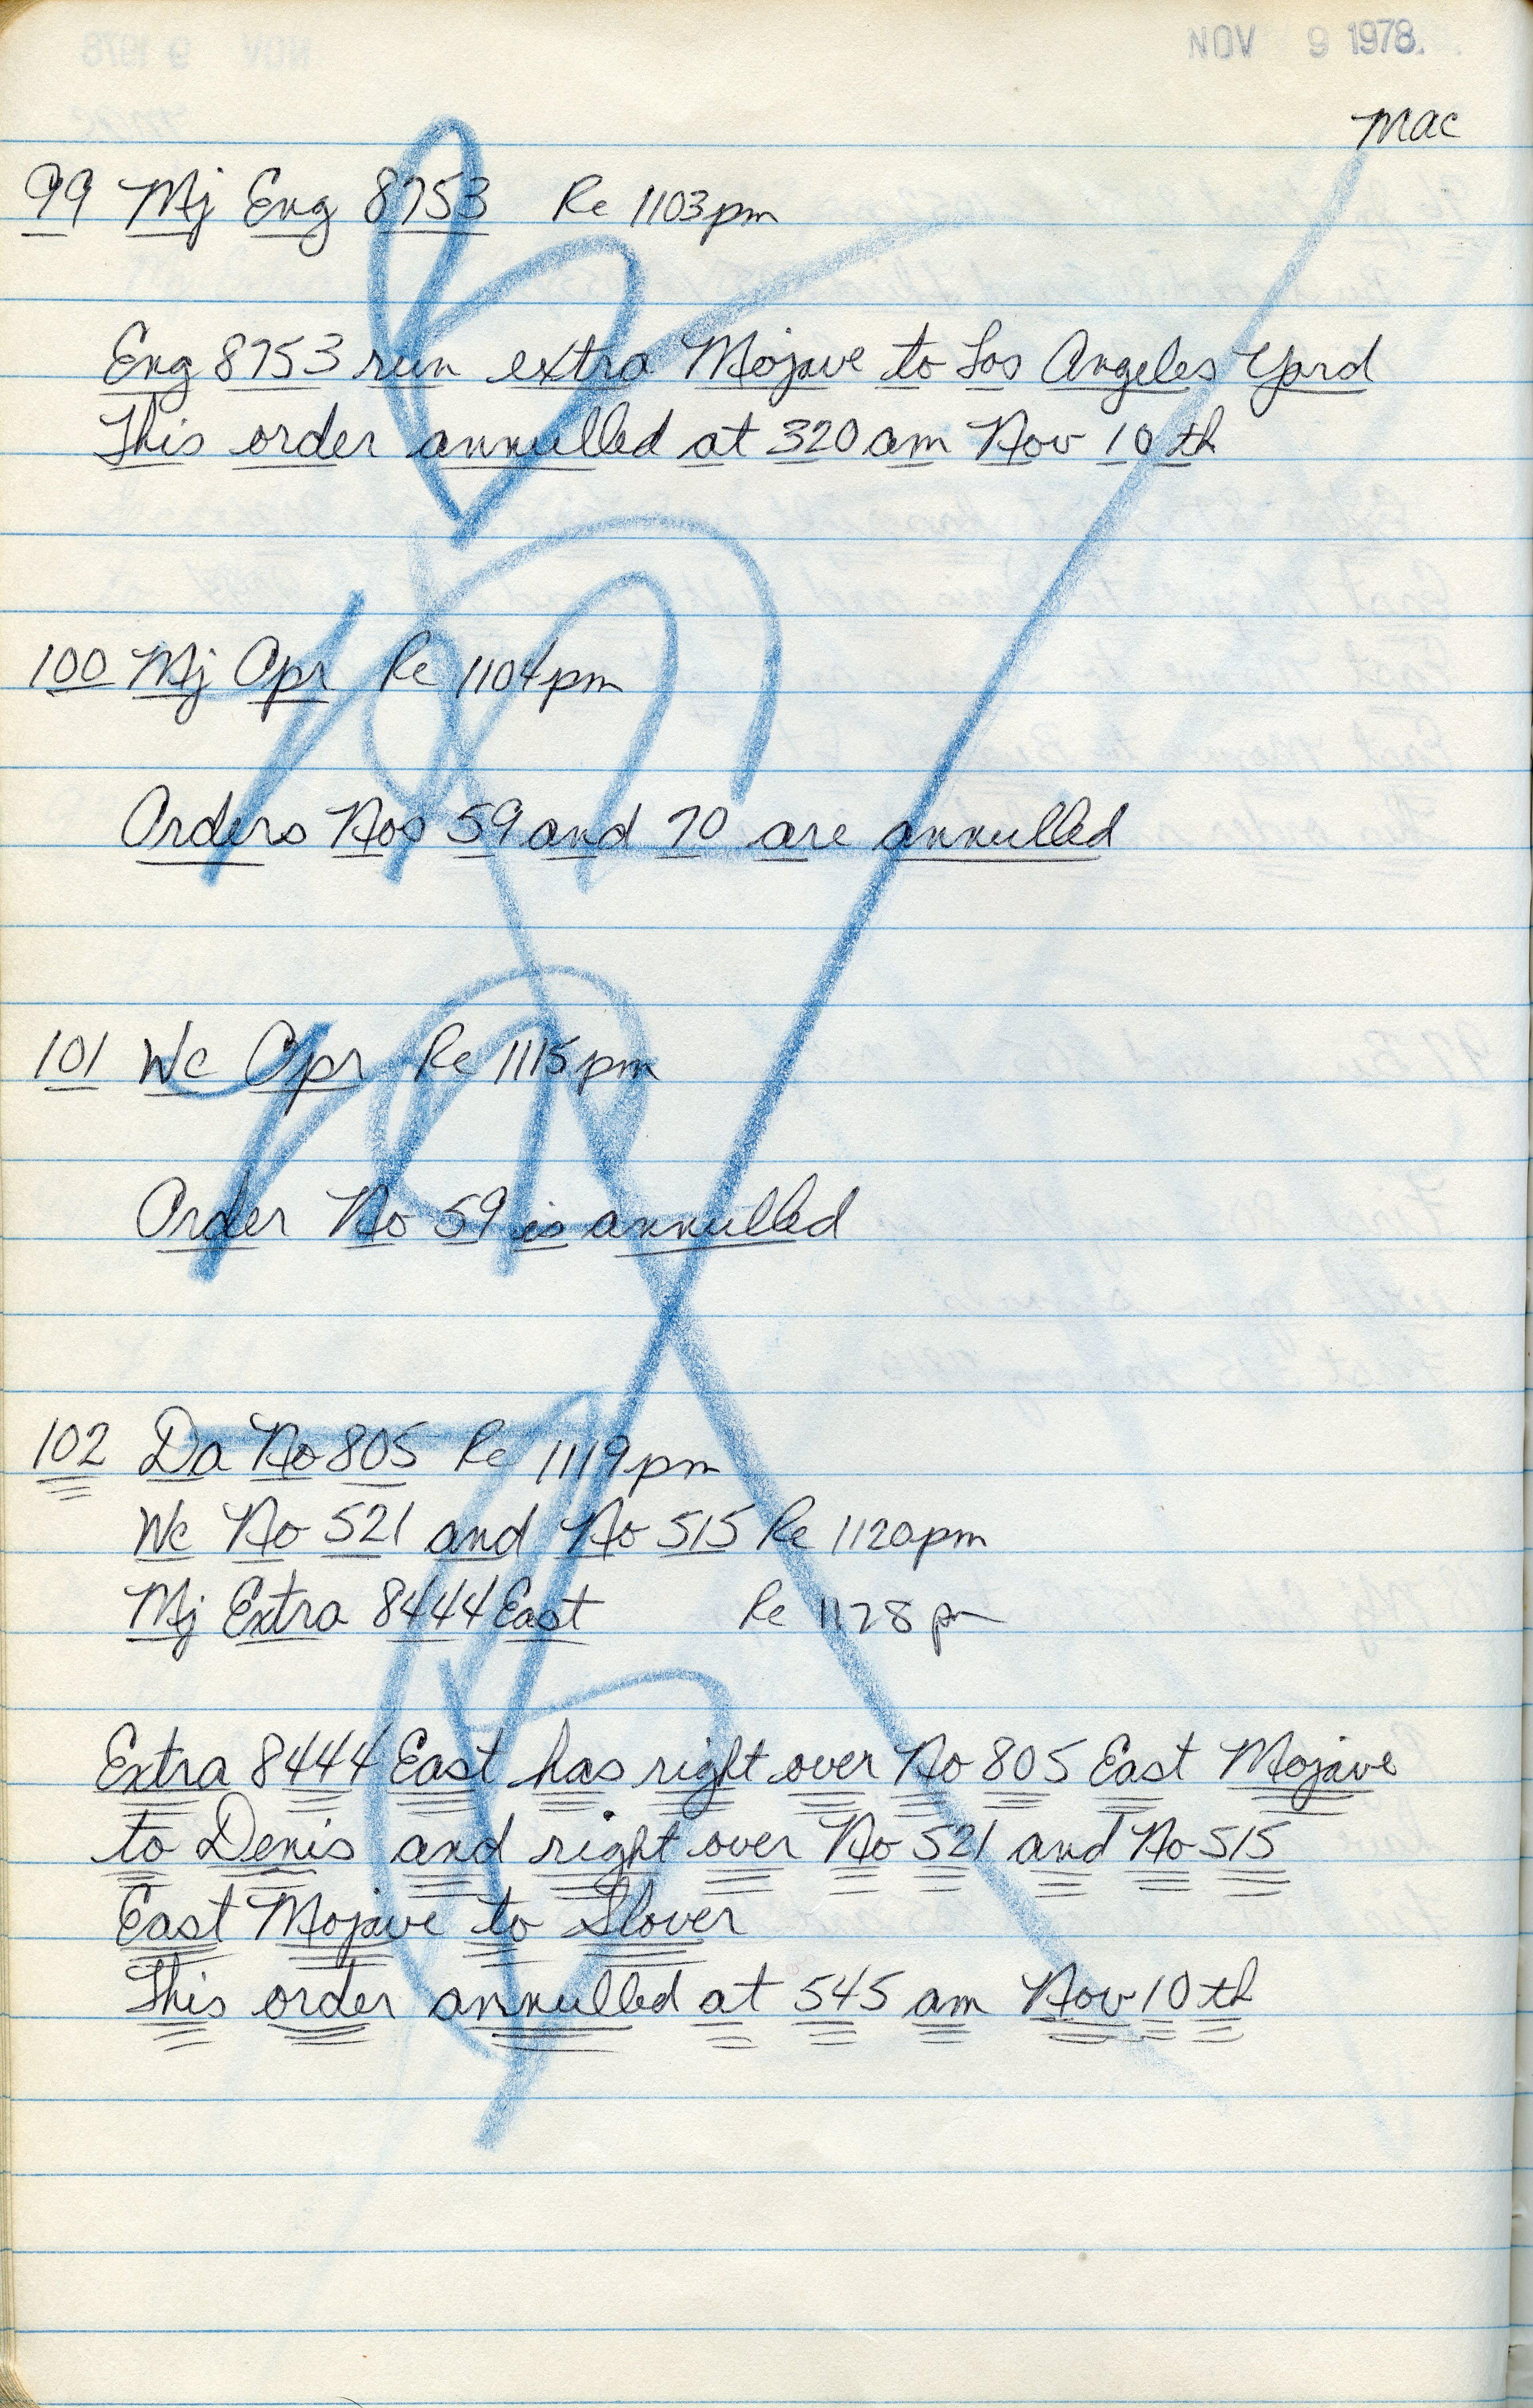 NOV 9 1978.
mac
99 Mj Eng 8753 Re 1103pm
Eng 8753 run extra Mojave to Los Angeles Yard
This order annulled at 320 am Nov 10 th
100 Mj Opr Re 1104pm
Orders Nos 59 and 70 are annulled
101 Wc Opr Re 1115pm
Order No 59 is annulled
102 Da No 805 Re 1119pm
Wc No 521 and No 515 Re 1120pm
Mj Extra 8444 East Re 1128pm
Extra 8444 East has right over No 805 East Mojave
to Denis and right over No 521 and No 515
East Mojave to Slover
This order annulled at 545 am Nov 10 th